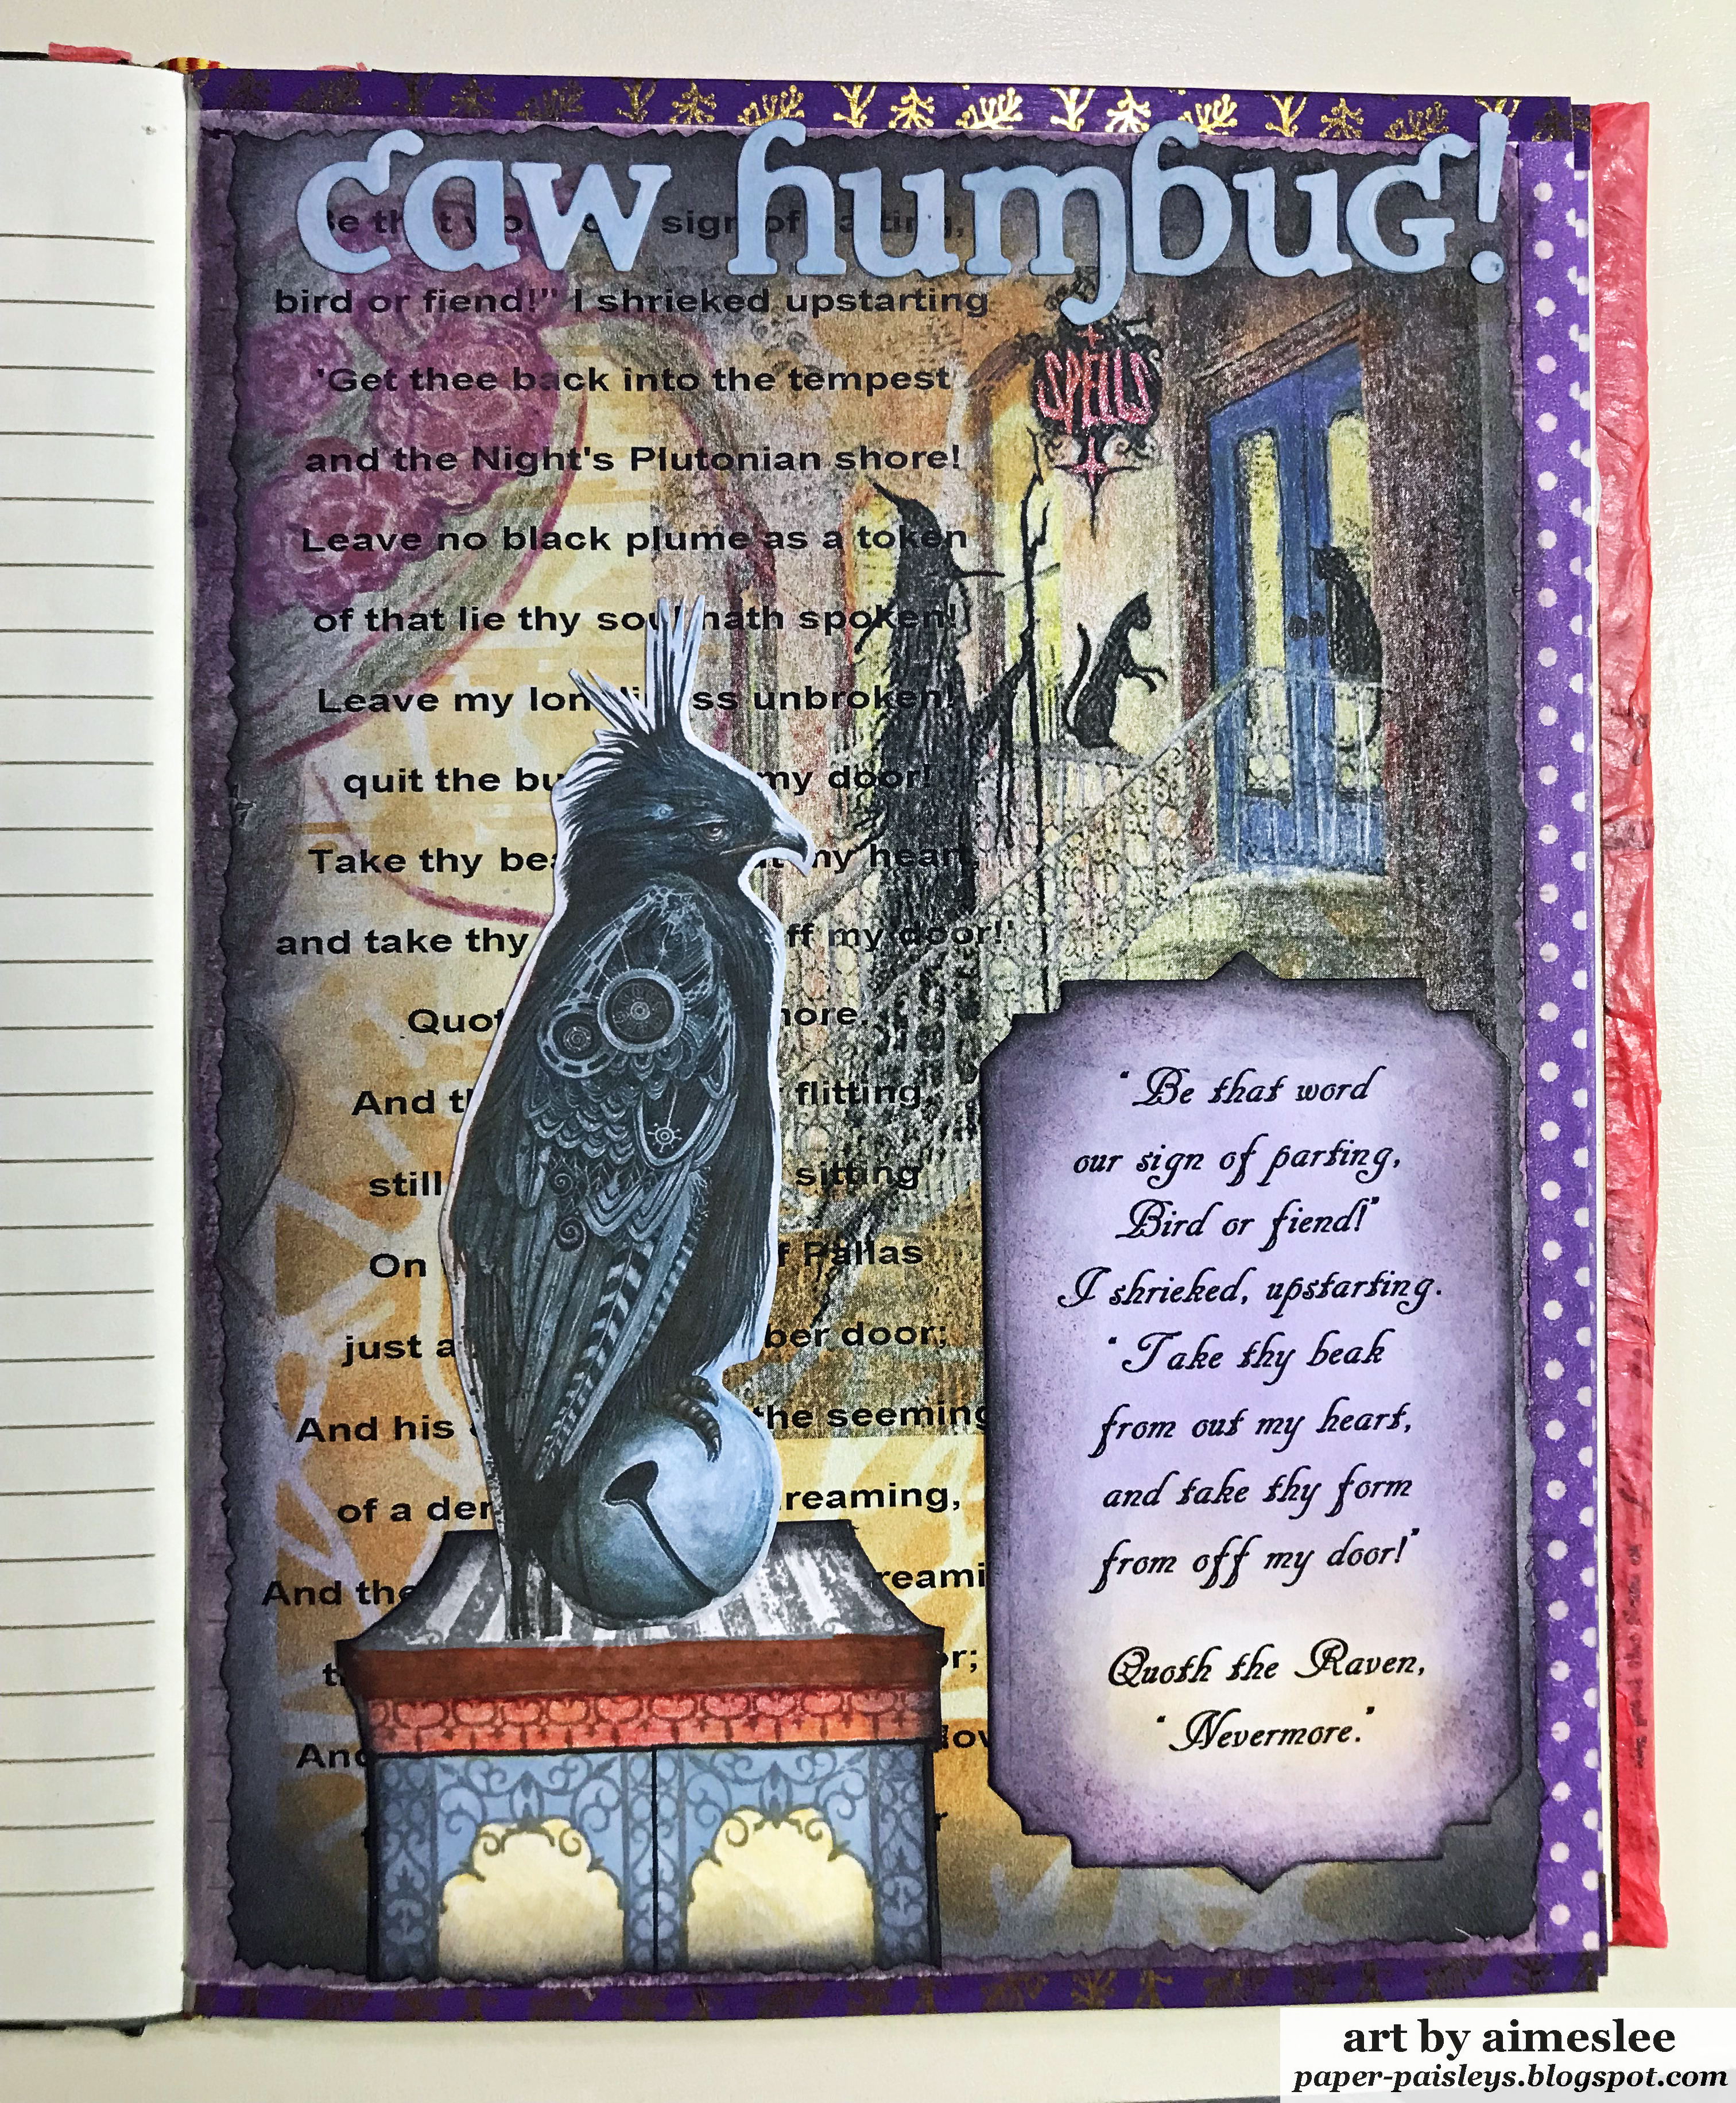 caw humbug!
sign of
bird or fiend!" I shrieked upstarting
'Get thee back into the tempest
and the Night's Plutonian shore!
Leave no black plume as a token
of that lie thy soul hath spoken!
Leave my lon ss unbroken!
quit the bu my door!
Take thy bea my heart,
and take thy ff my door!'
Quot more.
And th flitting,
still sitting
On f Pallas
just a ber door;
And his the seeming
of a dem reaming,
And the reami
r;
And
SPELLS
"Be that word
our sign of parting,
Bird or fiend!"
I shrieked, upstarting.
"Take thy beak
from out my heart,
and take thy form
from off my door!"
Quoth the Raven,
"Nevermore."
art by aimeslee
paper-paisleys.blogspot.com